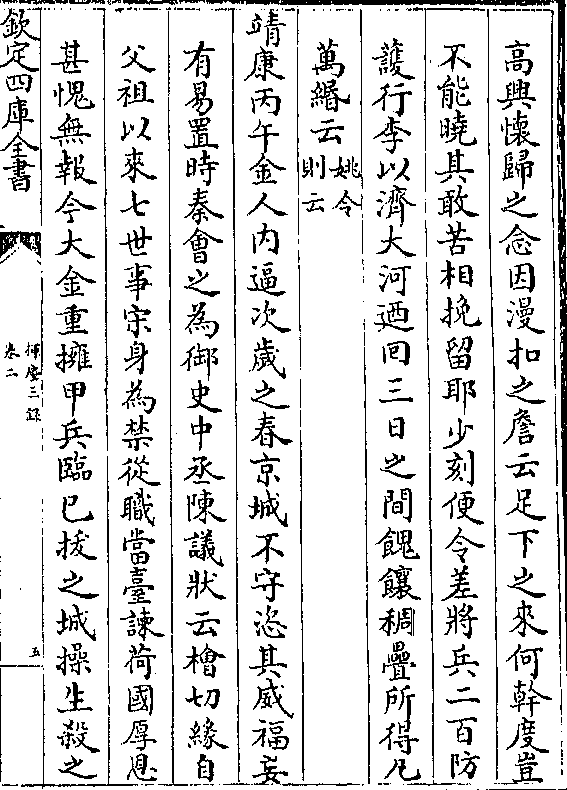 高興懷歸之念因漫扣之詹云足下之來何幹度豈
不能曉其敢苦相挽留耶少刻便令差將兵二百防
䕶行李以濟大河迺回三日之間餽饟稠疊所得凡
萬緡云姚令則云
靖康丙午金人内逼次歲之春京城不守恣其威福妄
有易置時秦會之為御史中丞陳議狀云檜切緣自
父祖以來七世事宋身為禁從職當臺諫荷國厚恩
甚愧無報今大金重擁甲兵臨已拔之城操生殺之
欽定四庫全書
揮麈三錄
卷二
五